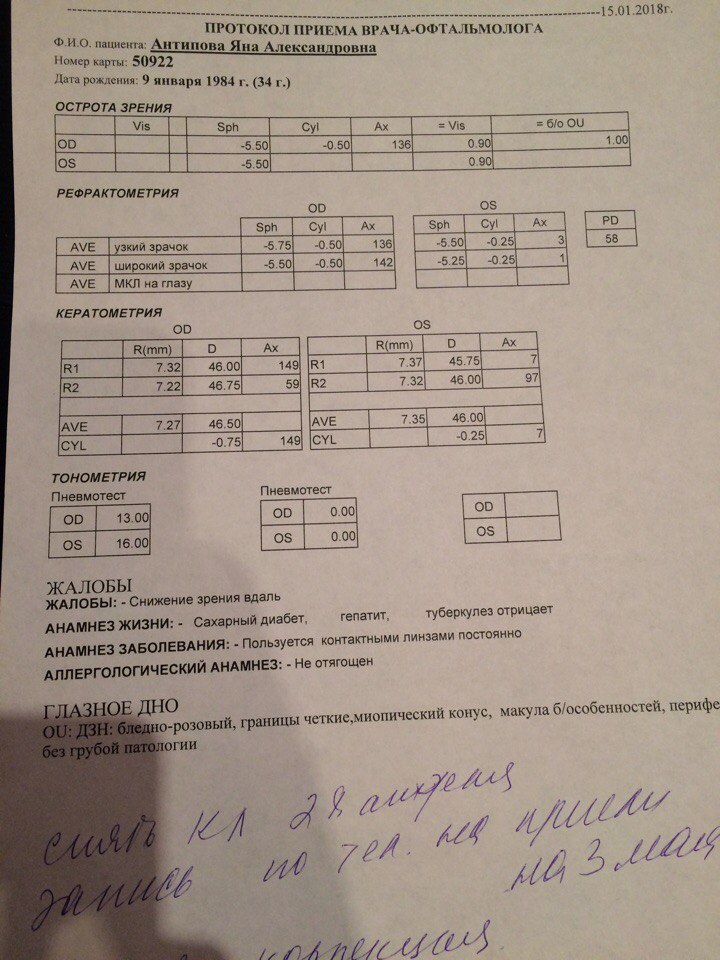 15.01.2018г.
ПРОТОКОЛ ПРИЕМА ВРАЧА-ОФТАЛЬМОЛОГА
Ф.И.О. пациента: Антипова Яна Александровна
Номер карты: 50922
Дата рождения: 9 января 1984 г. (34 г.)
ОСТРОТА ЗРЕНИЯ
Vis Sph Cyl Ax = Vis = б/о OU
OD -5.50 -0.50 136 0.90 1.00
OS -5.50 0.90
РЕФРАКТОМЕТРИЯ
OD OS
Sph Cyl Ax Sph Cyl Ax PD
AVE узкий зрачок -5.75 -0.50 136 -5.50 -0.25 3 58
AVE широкий зрачок -5.50 -0.50 142 -5.25 -0.25 1
AVE МКЛ на глазу
КЕРАТОМЕТРИЯ
OD OS
R(mm) D Ax R(mm) D Ax
R1 7.32 46.00 149 R1 7.37 45.75 7
R2 7.22 46.75 59 R2 7.32 46.00 97
AVE 7.27 46.50 AVE 7.35 46.00
CYL -0.75 149 CYL -0.25 7
ТОНОМЕТРИЯ
Пневмотест Пневмотест
OD 13.00 OD 0.00 OD
OS 16.00 OS 0.00 OS
ЖАЛОБЫ
ЖАЛОБЫ: - Снижение зрения вдаль
АНАМНЕЗ ЖИЗНИ: - Сахарный диабет, гепатит, туберкулез отрицает
АНАМНЕЗ ЗАБОЛЕВАНИЯ: - Пользуется контактными линзами постоянно
АЛЛЕРГОЛОГИЧЕСКИЙ АНАМНЕЗ: - Не отягощен
ГЛАЗНОЕ ДНО
OU: ДЗН: бледно-розовый, границы четкие,миопический конус, макула б/особенностей, перифе
без грубой патологии
снять КЛ 28 апреля
запись по тел. на прием
на 3 мая
коррекция